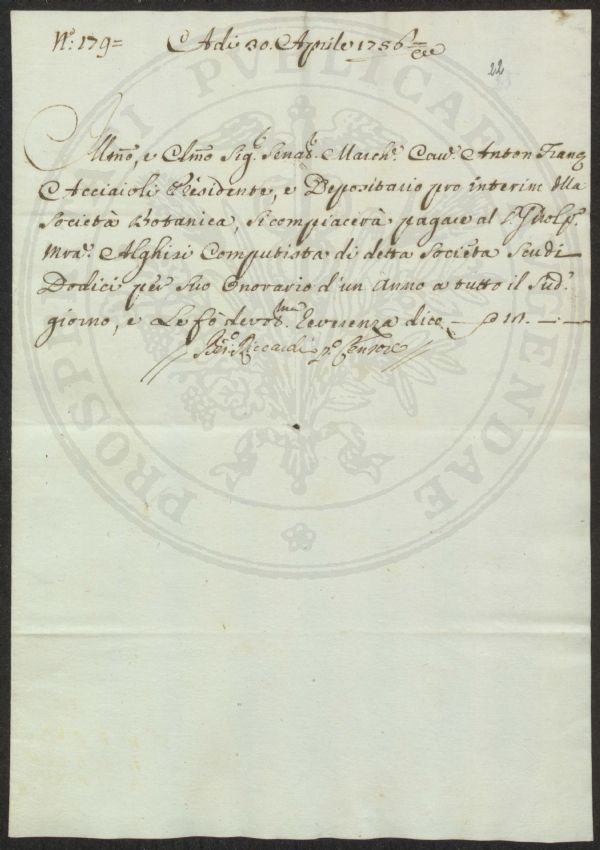 N.º 179=
Adi 30. Aprile 1756
22
Illmo, e Clmo Sig.r Senat.r March.e Cav.re Anton Franco
Acciaioli Presidente, e Depositario pro interim della
Società Botanica, si compiacerà pagare al
Alghisi Computista di detta Società Scudi
Dodici per Suo Onorario d'un Anno a tutto il Sud.o
giorno, e Le fò devotma Reverenza dico
Ber.o Riccardi p.o Censore
PROSPERITATI PVBLICAE AVGENDAE